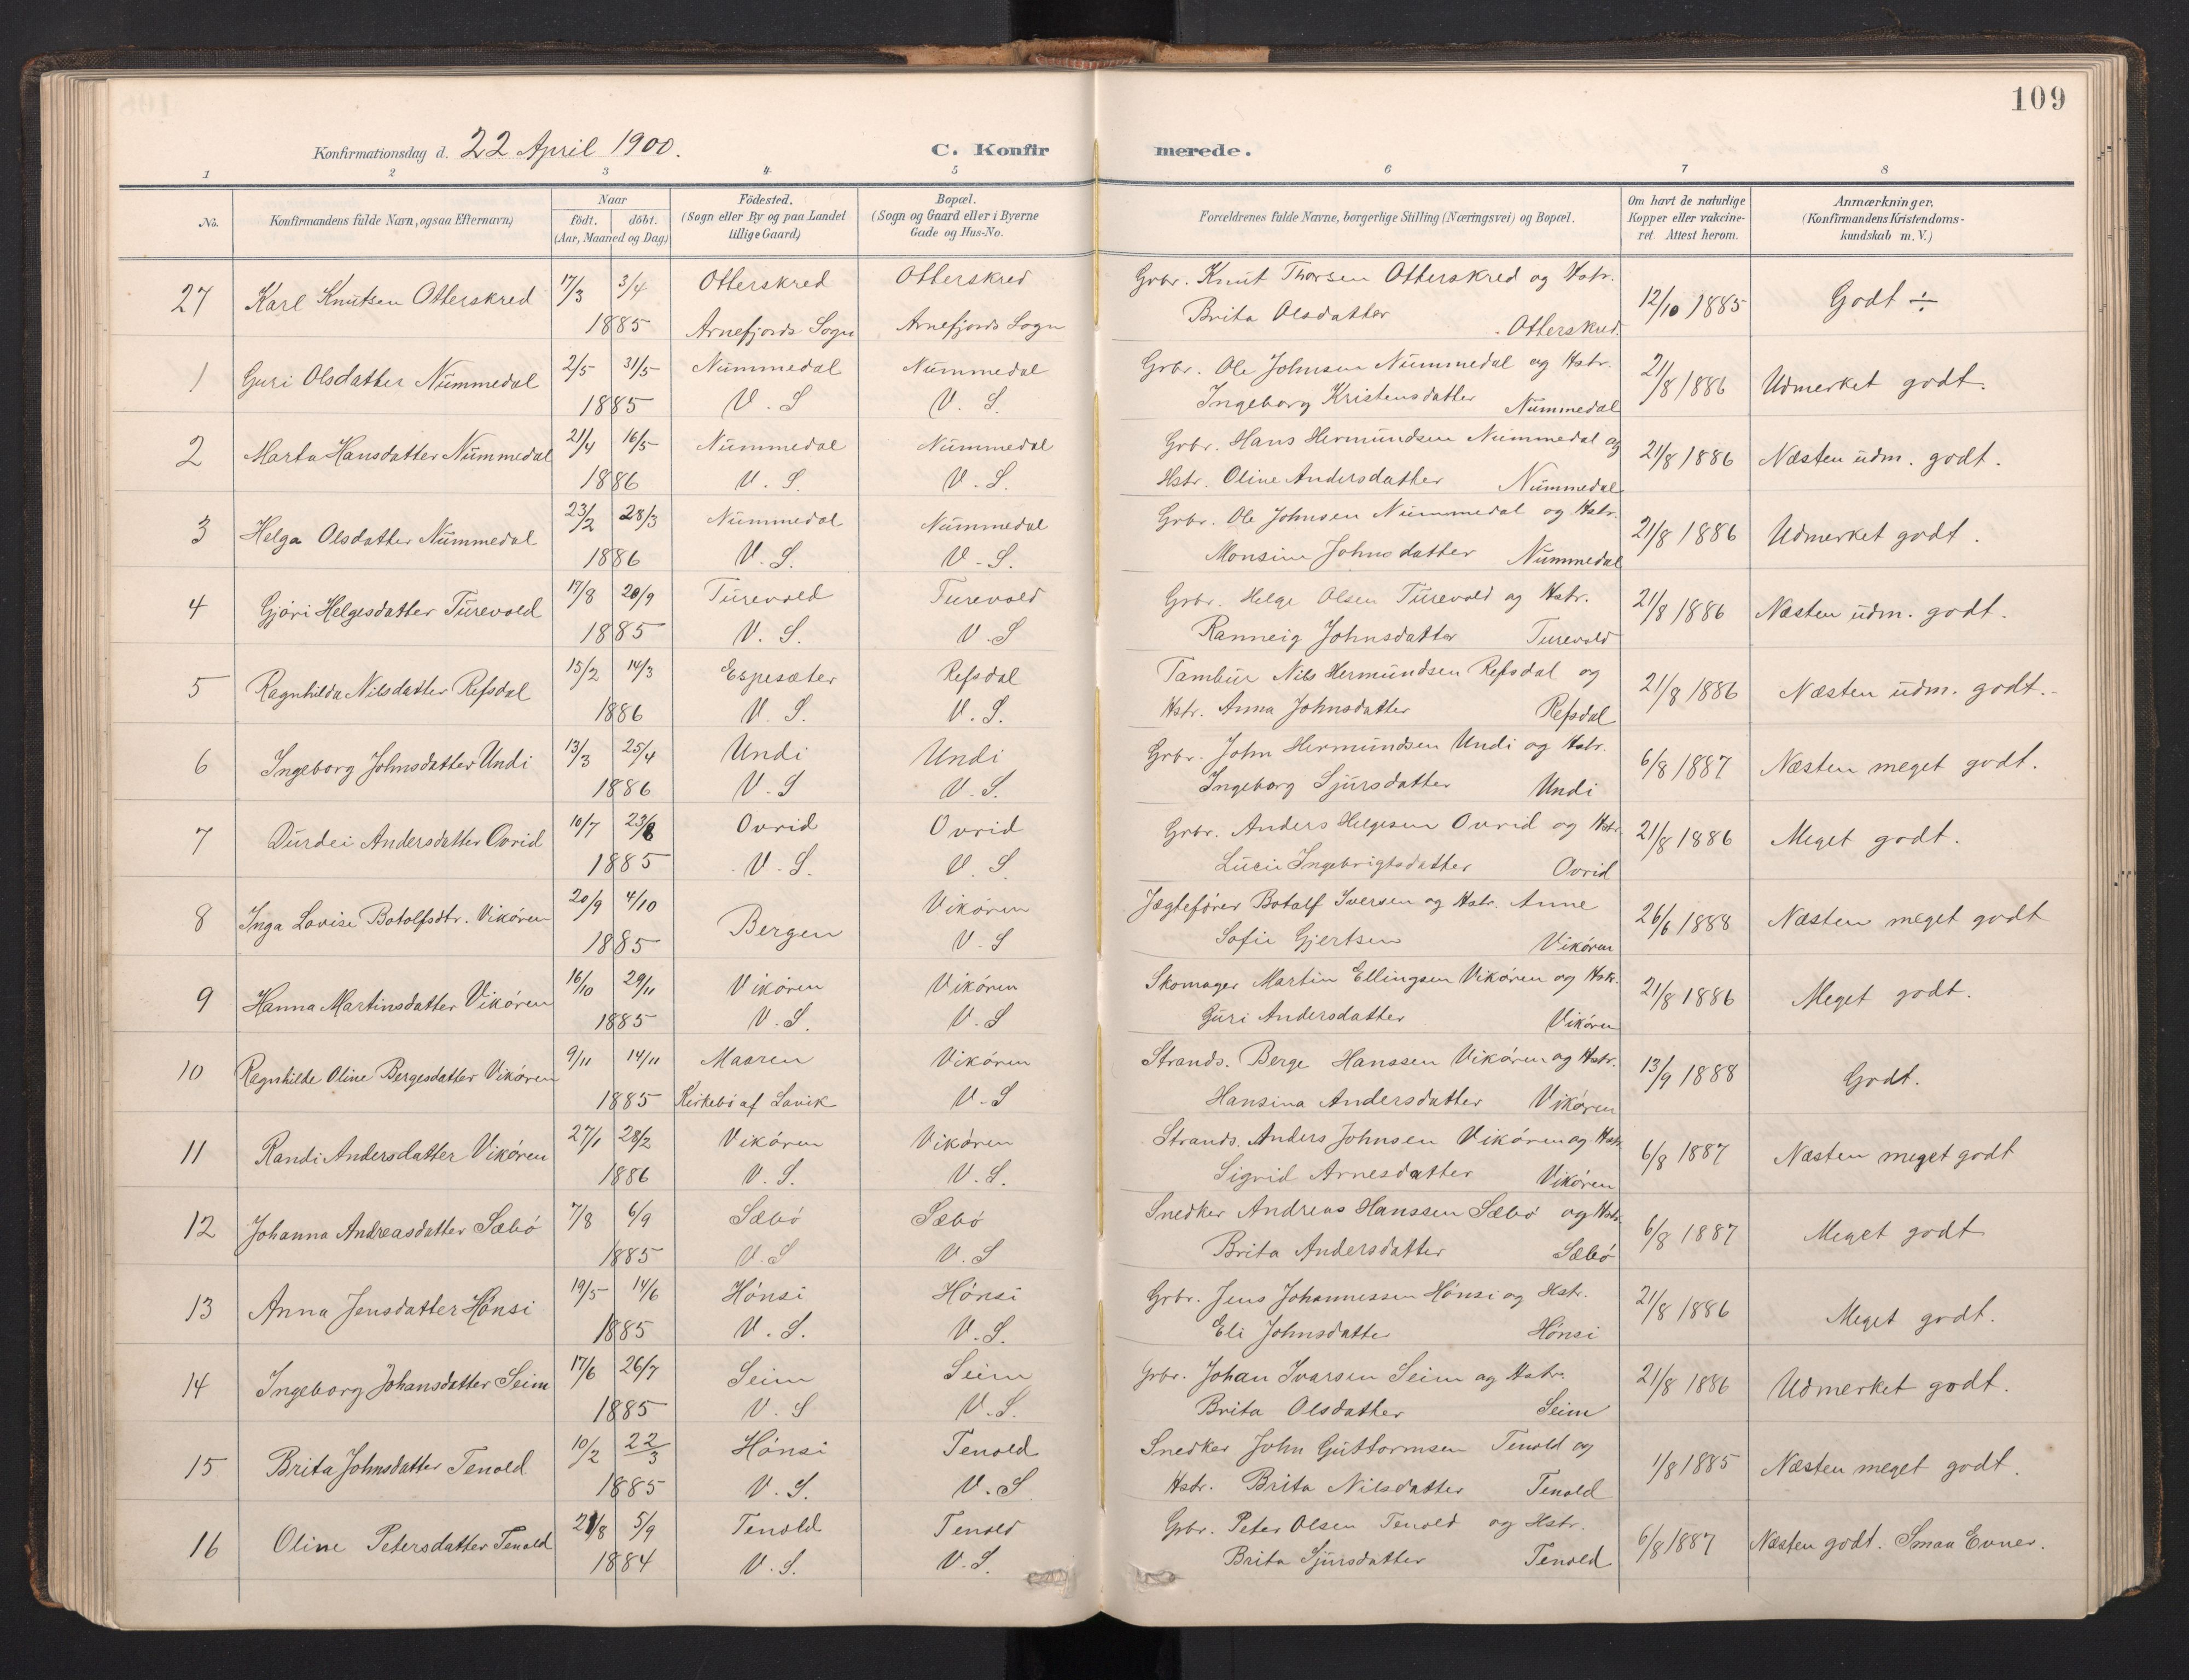 109
Konfirmationsdag d. 22 April 1900.
C. Konfirmerede.
1 2 3 4 5 6 7 8
No.
Konfirmandens fulde Navn, ogsaa Efternavn)
Naar
födt. döbt.
(Aar, Maaned og Dag)
Födested.
(Sogn eller By og paa Landet
tillige Gaard)
Bopæl.
(Sogn og Gaard eller i Byerne
Gade og Hus-No.
Forældrenes fulde Navne, borgerlige Stilling (Næringsvei) og Bopæl.
Om havt de naturlige
Kopper eller vakcine-
ret Attest herom.
Anmærkninger.
(Konfirmandens Kristendoms-
kundskab m. V.)
27 Karl Knutsen Otterskred 17/3 3/4 Otterskred Otterskred Grbr. Knut Thorsen Otterskred og Hstr. 12/10 1885 Godt ÷
1885 Arnefjords Sogn Arnefjords Sogn Brita Olsdatter Otterskred
1 Guri Olsdatter Nummedal 2/5 31/5 Nummedal Nummedal Grbr. Ole Johnsen Nummedal og Hstr. 21/8 1886 Udmerket godt.
1885 V. S V. S. Ingeborg Kristensdatter Nummedal
2 Marta Hansdatter Nummedal 21/4 16/5 Nummedal Nummedal Grbr. Hans Hermundsen Nummedal og 21/8 1886 Næsten udm. godt.
1886 V. S. V. S. Hstr. Oline Andersdatter Nummedal
3 Helga Olsdatter Nummedal 23/2 28/3 Nummedal Nummedal Grbr. Ole Johnsen Nummedal og Hstr. 21/8 1886 Udmerket godt.
1886 V. S. V. S. Monsine Johnsdatter Nummedal
4 Gjöri Helgesdatter Turevold 17/8 20/9 Turevold Turevold Grbr. Helge Olsen Turevold og Hstr. 21/8 1886 Næsten udm. godt.
1885 V. S. V. S Ranneig Johnsdatter Turevold
5 Ragnhilda Nilsdatter Refsdal 15/2 14/3 Espesæter Refsdal Tambur Nils Hermundsen Refsdal og 21/8 1886 Næsten udm. godt.
1886 V. S. V. S. Hstr. Anna Johnsdatter Refsdal
6 Ingeborg Johnsdatter Undi 13/3 25/4 Undi Undi Grbr. John Hermundsen Undi og Hstr. 6/8 1887 Næsten meget godt.
1886 V. S V. S. Ingeborg Sjursdatter Undi
7 Durdei Andersdatter Ovrid 10/7 23/8 Ovrid Ovrid Grbr. Anders Helgesen Ovrid og Hstr. 21/8 1886 Meget godt.
1885 V. S. V. S. Lucie Ingebrigtsdatter Ovrid
8 Inga Lovise Botolfsdtr. Vikören 20/9 4/10 Bergen Vikören Jægtefører Botolf Iversen og Hstr. Anne 26/6 1888 Næsten meget godt
1885 V. S Sofie Gjertsen Vikören
9 Hanna Martinsdatter Vikören 16/10 29/11 Vikören Vikören Skomager Martin Ellingsen Vikören og Hstr. 21/8 1886 Meget godt.
1885 V. S. V. S Guri Andersdatter Vikören
10 Ragnhilde Oline Bergesdatter Vikören 9/11 14/11 Maaren Vikören Strands. Berge Hanssen Vikören og Hstr. 13/9 1888 Godt.
1885 Kirkebö af Lavik V. S Hansina Andersdatter Vikören
11 Randi Andersdatter Vikören 27/1 28/2 Vikören Vikören Strands. Anders Johnsen Vikören og Hstr. 6/8 1887 Næsten meget godt
1886 V. S. V. S. Sigrid Arnesdatter Vikören
12 Johanna Andreasdatter Sæbö 7/8 6/9 Sæbö Sæbö Snedker Andreas Hanssen Sæbö og Hstr. 6/8 1887 Meget godt
1885 V. S V. S Brita Andersdatter Sæbö
13 Anna Jensdatter Hönsi 19/5 14/6 Hönsi Hönsi Grbr. Jens Johannessen Hönsi og Hstr. 21/8 1886 Meget godt.
1885 V. S. V. S. Eli Johnsdatter Hönsi
14 Ingeborg Johansdatter Seim 17/6 26/7 Seim Seim Grbr. Johan Ivarsen Seim og Hstr. 21/8 1886 Udmerket godt.
1885 V. S V. S. Brita Olsdatter Seim
15 Brita Johnsdatter Tenold 10/2 22/3 Hönsi Tenold Snedker John Guttormsen Tenold og 1/8 1885 Næsten meget godt.
1885 V. S. V. S Hstr. Brita Nilsdatter Tenold
16 Oline Petersdatter Tenold 21/8 5/9 Tenold Tenold Grbr. Peter Olsen Tenold og Hstr. 6/8 1887 Næsten godt. Smaa Evner.
1884 V. S. V. S. Brita Sjursdatter Tenold